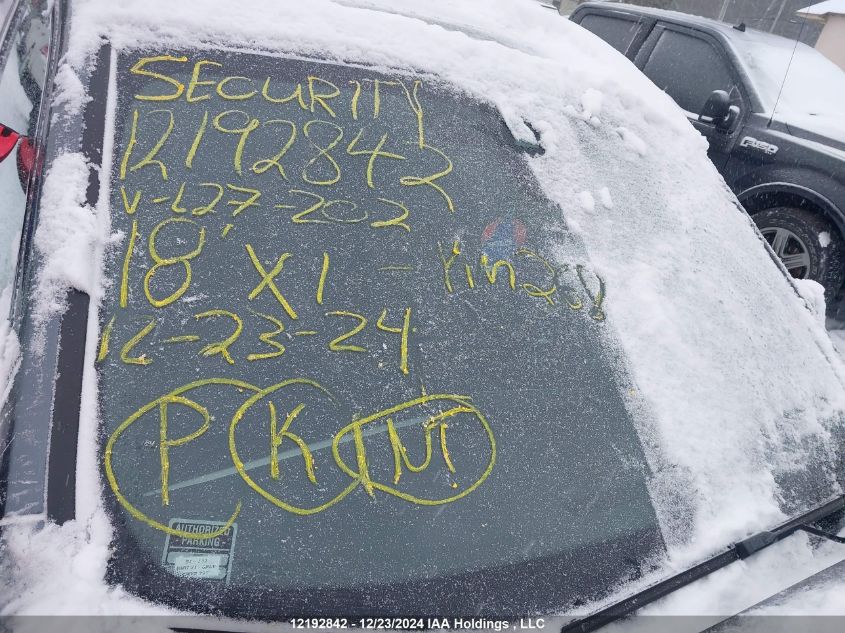 SECURITY
12192842
V-127-202
18' X 1 -
12-23-24
P K INT
AUTHORIZED
- PARKING -
F-150
12192842 - 12/23/2024 IAA Holdings , LLC